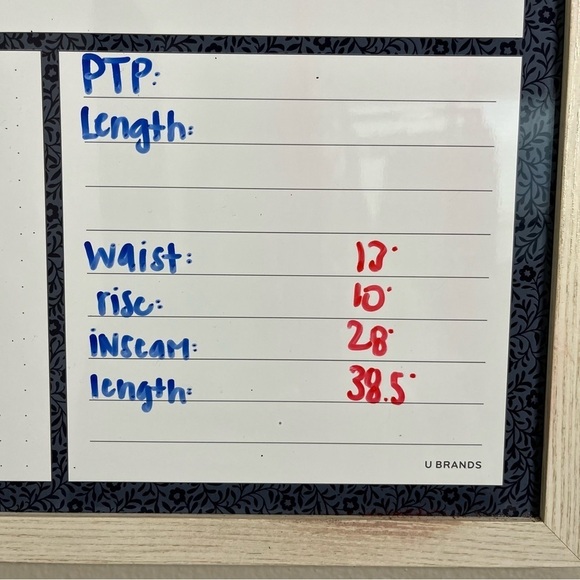 PTP:
Length:
Waist:
rise: 10"
inseam: 28"
length: 38.5"
U BRANDS